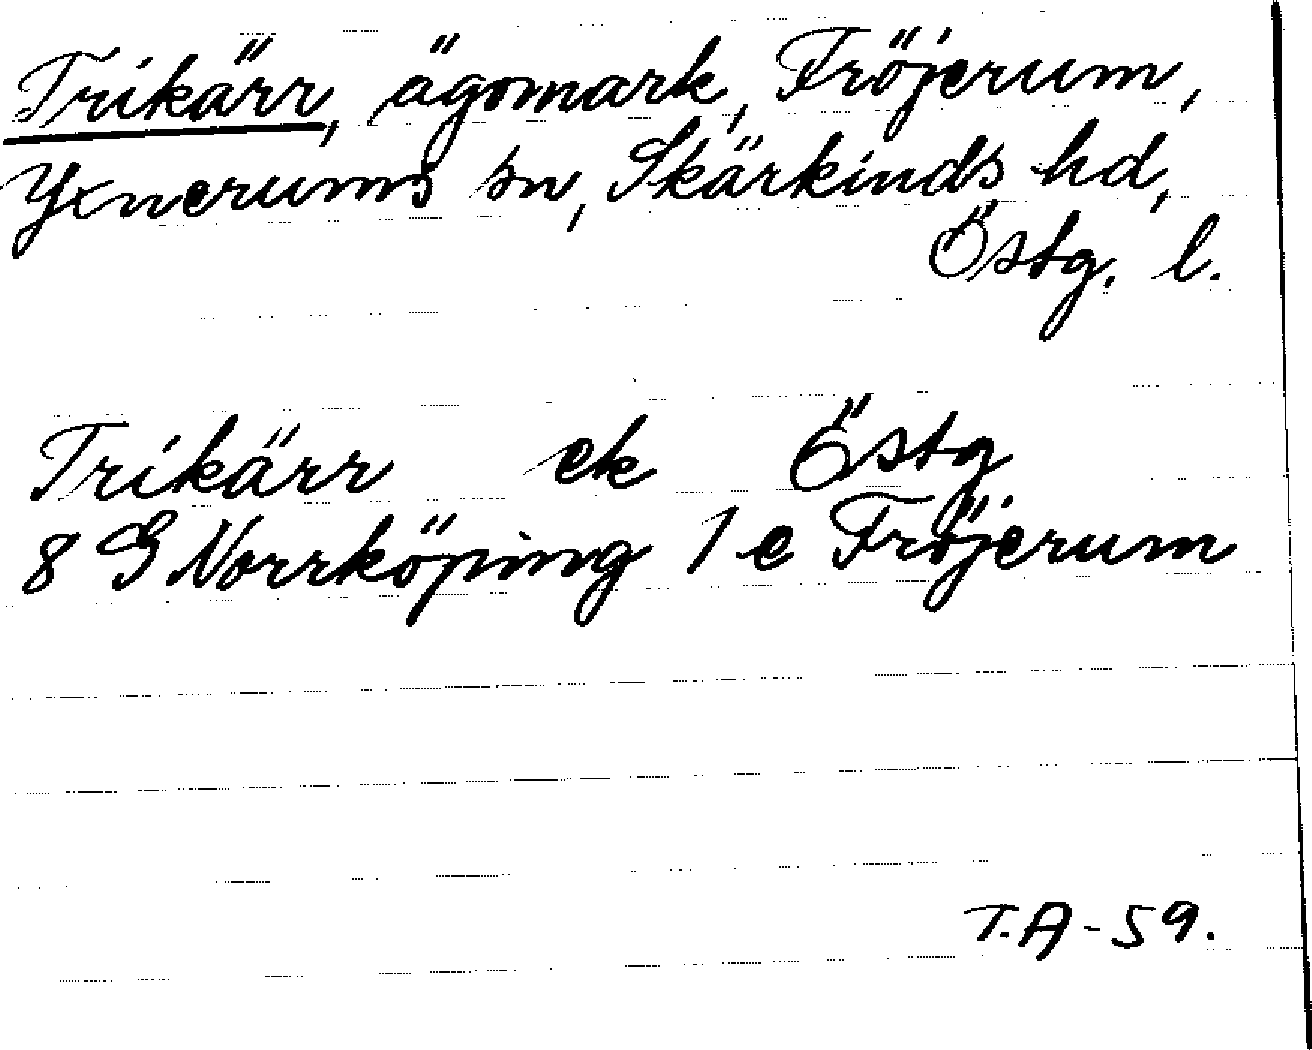 Trikärr, ägomark, Fröjerum,
Yxnerums sn, Skärkinds hd,
Östg. l.
Trikärr ek Östg
8 G Norrköping 1 e Fröjerum
T.A-59.